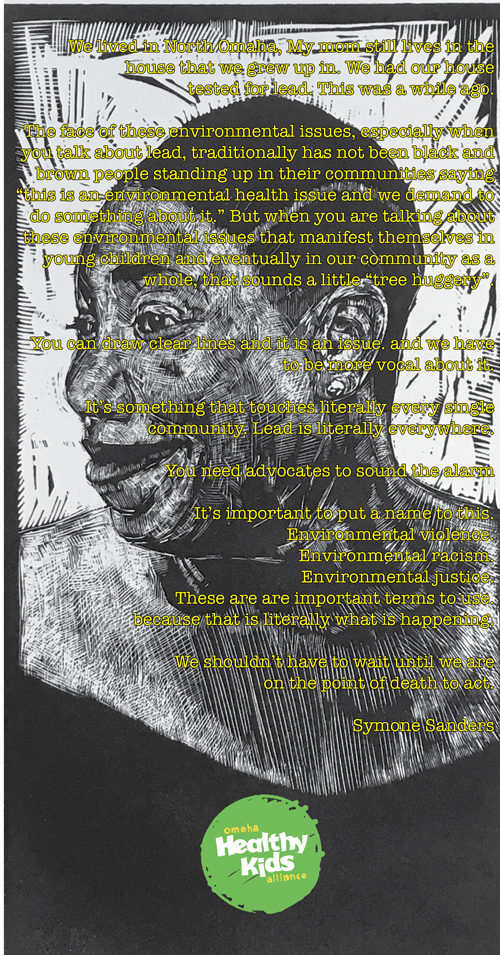 We lived in North Omaha, My mom still lives in the
house that we grew up in. We had our house
tested for lead. This was a while ago.
The face of these environmental issues, especially when
you talk about lead, traditionally has not been black and
brown people standing up in their communities saying
“this is an environmental health issue and we demand to
do something about it.” But when you are talking about
these environmental issues that manifest themselves in
young children and eventually in our community as a
whole, that sounds a little “tree huggery”
You can draw clear lines and it is an issue. and we have
to be more vocal about it.
It’s something that touches literally every single
community. Lead is literally everywhere.
You need advocates to sound the alarm
It’s important to put a name to this.
Environmental violence.
Environmental racism.
Environmental justice.
These are are important terms to use.
because that is literally what is happening.
We shouldn’t have to wait until we are
on the point of death to act.
Symone Sanders
omaha
Healthy
Kids
alliance